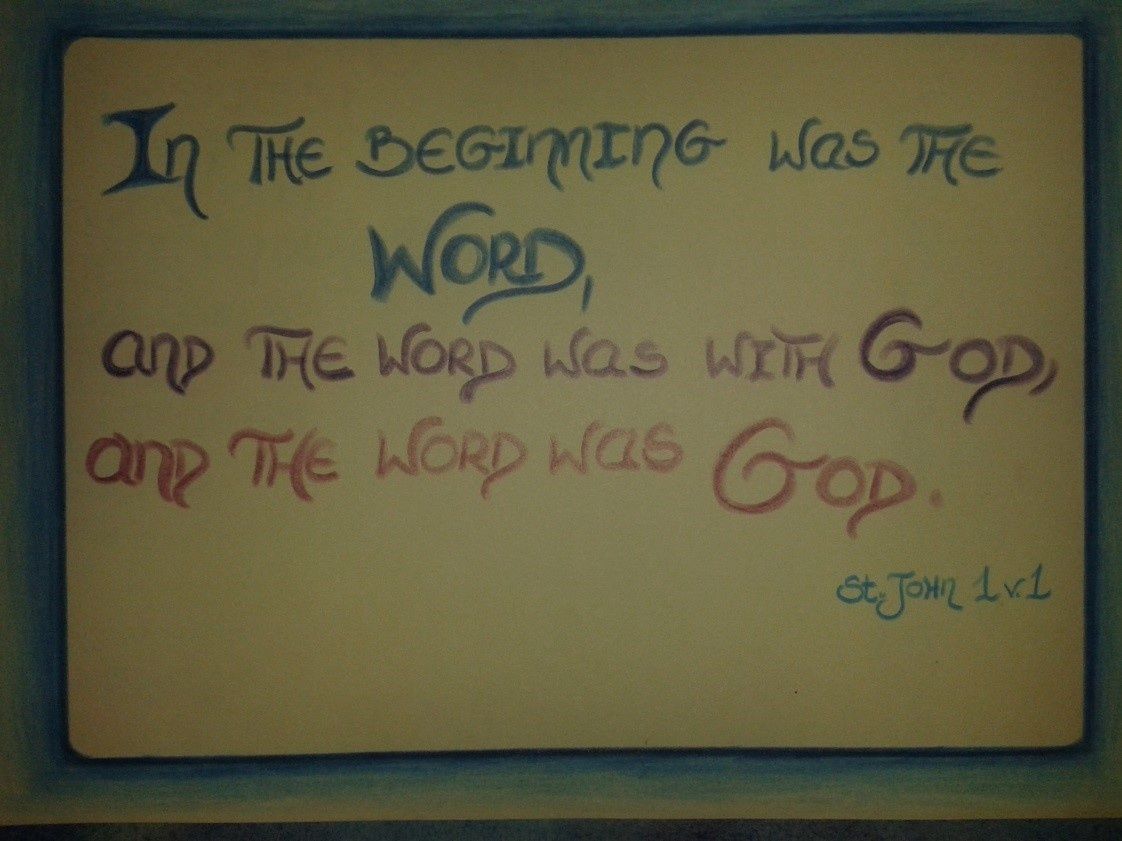 In THE BEGINNING was THE
WORD,
and THE WORD was WITH GOD,
and THE WORD was GOD.
St. John 1 v.1